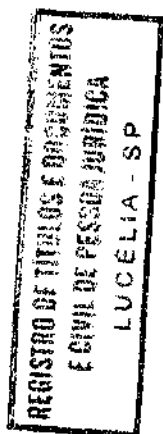 REGISTRO DE TÍTULOS E DOCUMENTOS
E CIVIL DE PESSOA JURÍDICA
LUCÉLIA - SP